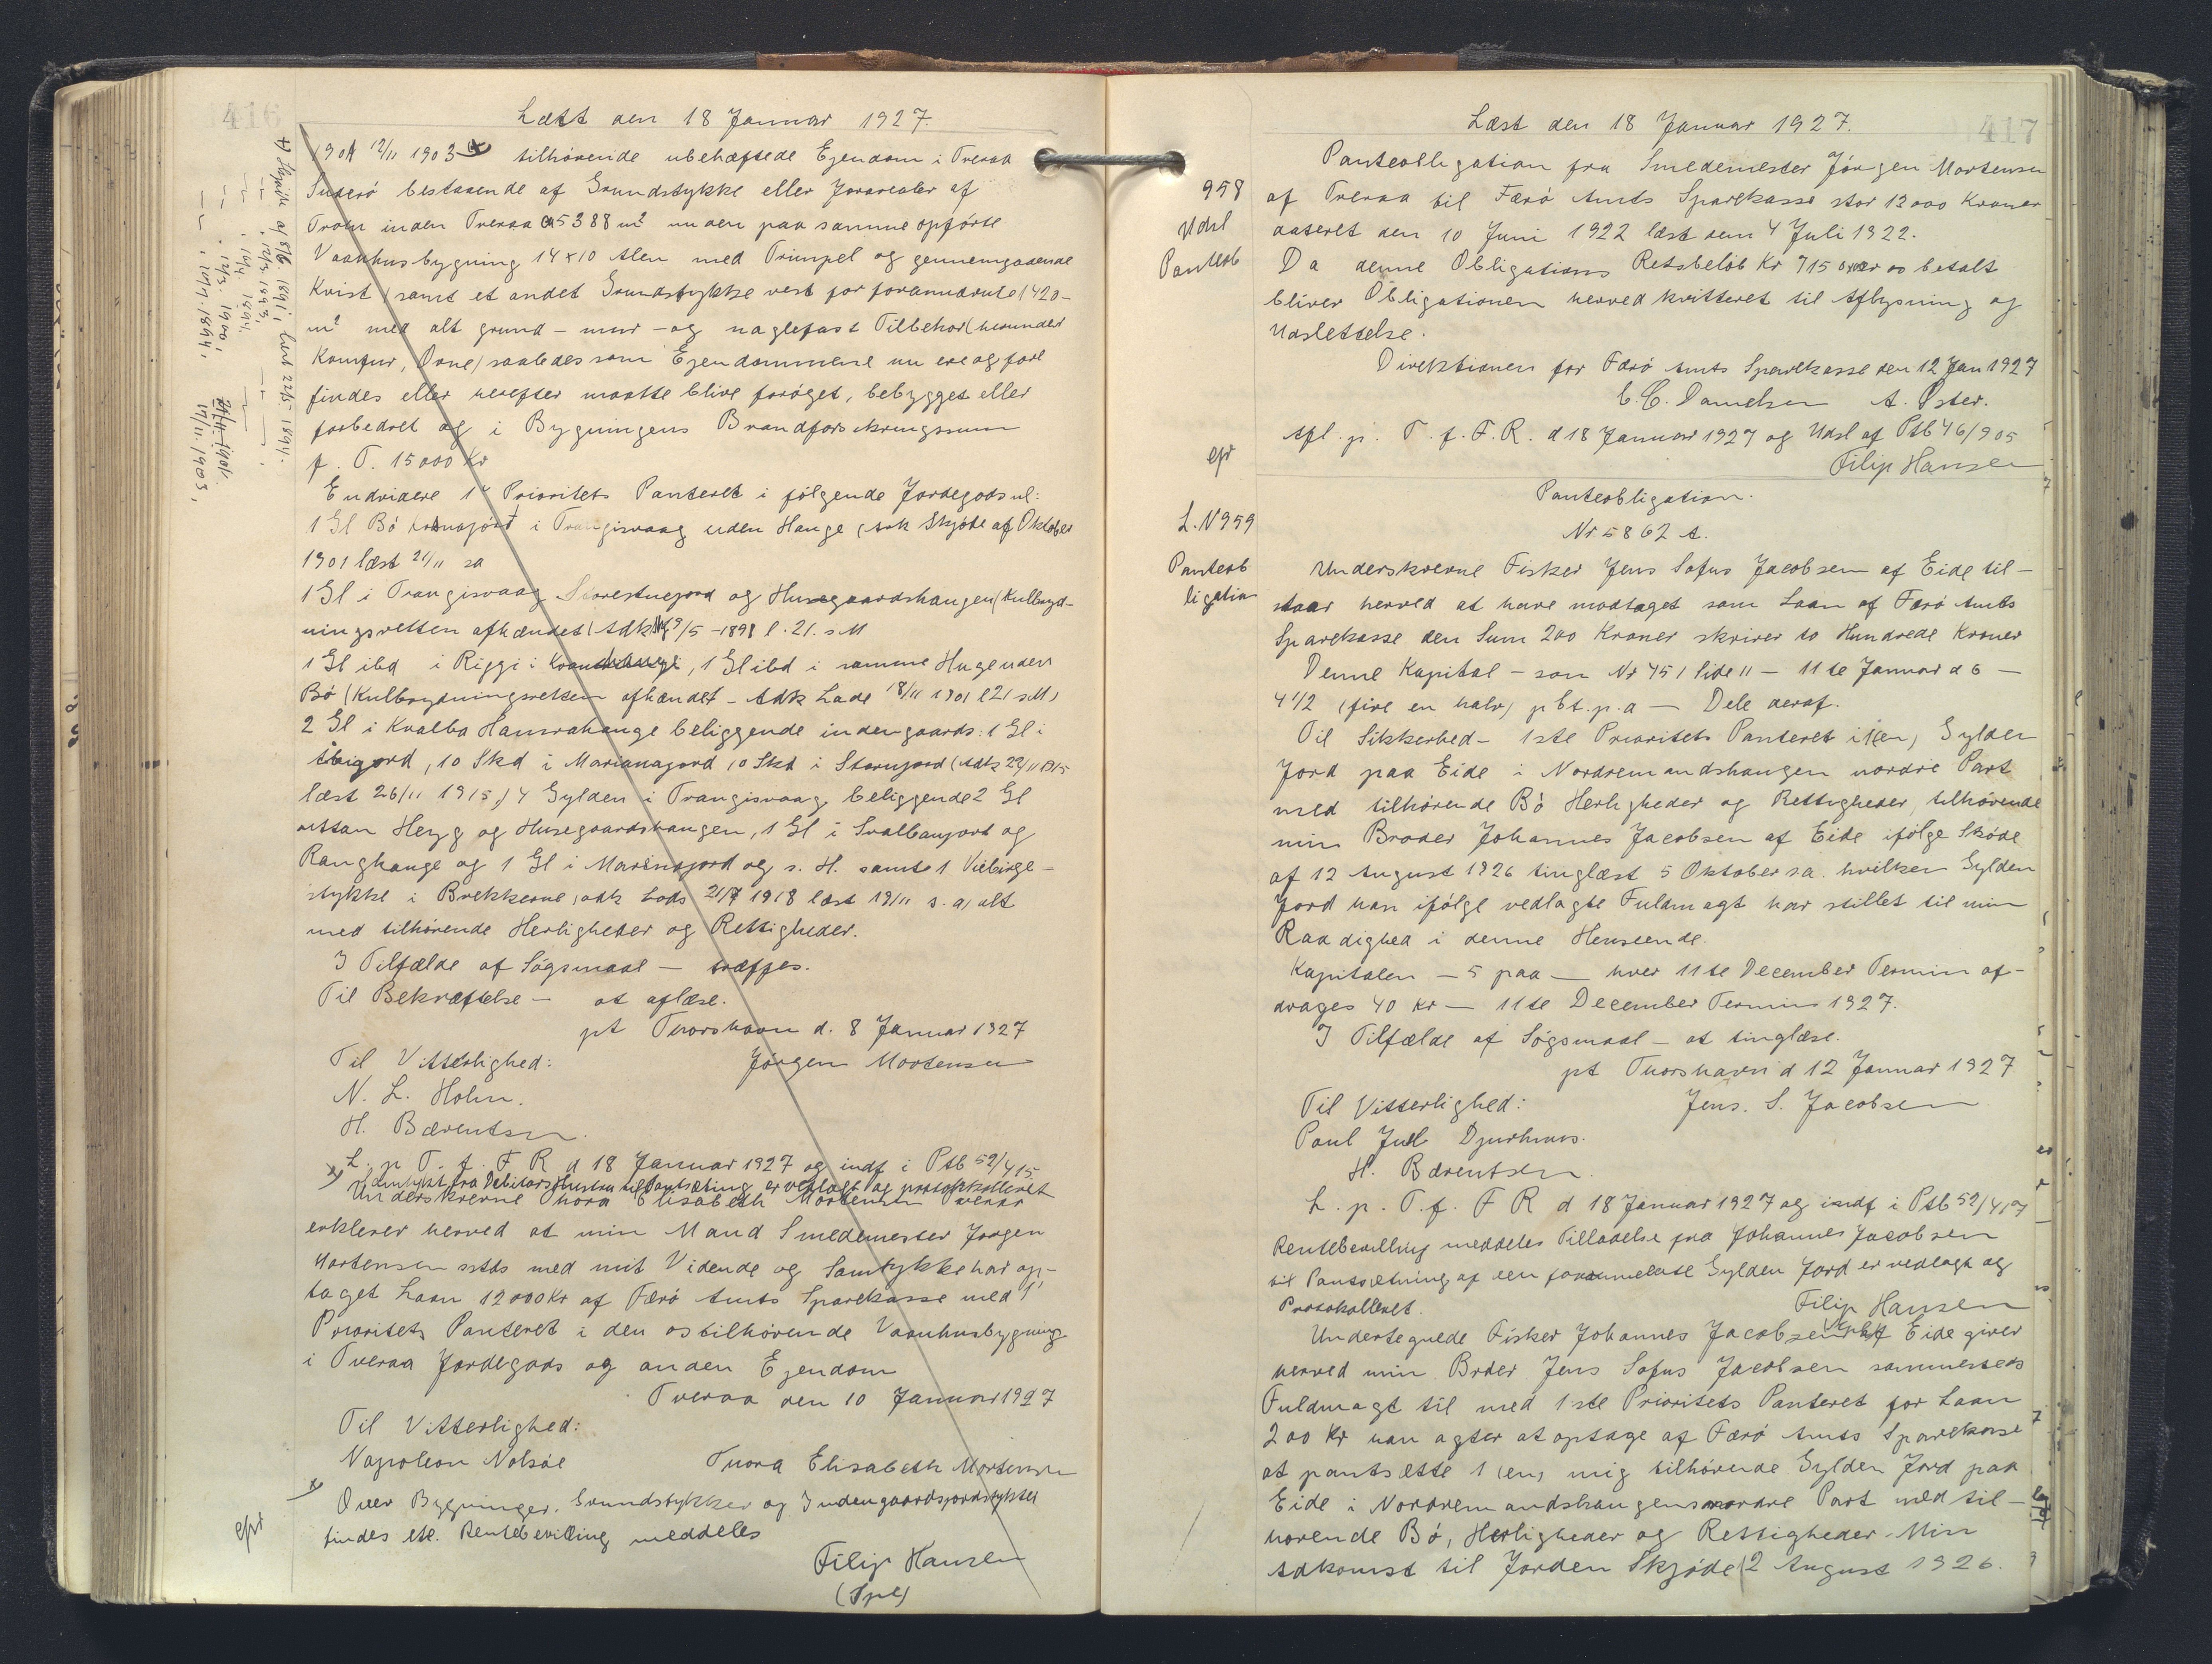 416
Læst den 18 Januar 1927.
1901 12/11 1903 tilhørende ubehæftede Ejendom i Tveraa
Suderø bestaaende af Grundstykke eller Jordarealer af
inden Tveraa a 5388 m² med den paa samme opførte
Vaanhusbygning 14 x 10 Alen med Trimpel og gennemgaaende
Kvist samt et andet Grundstykke vest for 1420-
m² med alt grund - mur - og naglefast Tilbehør (herunder
Komfur, Ovne) saaledes som Ejendommene nu ere og fore
findes eller herefter maatte blive forøget, bebygget eller
forbedret og i Bygningens Brandforsikringssum
p. T. 15000 Kr
Endvidere 1' Prioritets Panteret i følgende Jordegods nl:
1 Gl Bø i Trangisvaag uden Hauge (Adk Skjøde af Oktober
1901 læst 21/11 sa
1 Gl i Trangisvaag og Husegaardshaugen (Kulbryd-
ningsretten afhændet (Adk 9/5 - 1898 l. 21. s M
1 Gl ibd i Riggi i , 1 Gl ibd i samme Hauge uden
Bø (Kulbrydningsretten afhændet - Adk Lods 18/11 1901 l 21 s M)
2 Gl i Kvalba Hamrahauge beliggende indengaards: 1 Gl i
, 10 Skd i Marianajord 10 Skd i Stornjord (Adk 22/11 1915
læst 26/11 1915,) 4 Gylden i Trangisvaag beliggende 2 Gl
uttan Heyg og Husegaardshaugen, 1 Gl i Svalbanjord og
Ranghauge og 1 Gl i Marensjord og s. H. samt 1
stykke i Brekkerne, adk Lods 21/7 1918 læst 19/11 s. a, alt
med tilhørende Herligheder og Rettigheder.
I Tilfælde af Søgsmaal — træffes.
Til Bekræftelse — at aflæse.
pt Thorshavn d. 8 Januar 1927
Til Vitterlighed: Jørgen Mortensen
N. L. Holm.
H. Bærentsen.
L. p. T. f. F R d 18 Januar 1927 og indf i Ptb 52/415
Samtykt fra Debitors Hustru til Pantsætning er vedlagt og protokolleret
Underskrevne Thora Elisabeth Mortensen Tveraa
erklærer herved at min Mand Smedemester Jørgen
Mortensen sstds med mit Vidende og Samtykke har op-
taget Laan 12000 Kr af Færø Amts Sparekasse med 1'
Prioritets Panteret i den os tilhørende Vaanhusbygning
i Tveraa Jordegods og anden Ejendom
Tveraa den 10 Januar 1927
Til Vitterlighed:
Napoleon Nolsøe Thora Elisabeth Mortensen
Over Bygninger, Grundstykker og Indengaardsjordstykker
findes ell. Rentebevilling meddeles
Filip Hansen
(Spl)
+) Skjøde af 8/6. 1891, læst 22/5 1894.
- " - 12/3 1893,
- " - 16/4 1894,
- " - 12/3 1900,
- " - 10/7. 1894, 17/11. 1903,
417
Læst den 18 Januar 1927.
958
Udsl
Panteob
Panteobligation fra Smedemester Jørgen Mortensen
af Tveraa til Færø Amts Sparekasse stor 12000 Kroner
dateret den 10 Juni 1922 læst den 4 Juli 1922.
Da denne Obligations Restbeløb Kr 715 00 er betalt
bliver Obligationen herved kvitteret til Aflysning og
Udslettelse.
Direktionen for Færø Amts Sparekasse den 12 Jan 1927
C. C. Danielsen A. Øster.
Afl. p. T. f. F. R. d 18 Januar 1927 og Udsl af Ptb 46/905
Filip Hansen
L. N 959
Panteob
ligation
Panteobligation.
Nr 5862 A.
Underskrevne Fisker Jens Sofus Jacobsen af Eide til-
staar herved at have modtaget som Laan af Færø Amts
Sparekasse den Sum 200 Kroner skriver to Hundrede Kroner
Denne Kapital — som Nr 451 Side 11 — 11te Januar d 6 —
4 1/2 (fire en halv) pCt. p. a — Dele deraf.
Til Sikkerhed - 1ste Prioritets Panteret i 1(en) Gylden
Jord paa Eide i Nordremandshaugen nordre Part
med tilhørende Bø Herligheder og Rettigheder, tilhørende
min Broder Johannes Jacobsen af Eide ifølge Skøde
af 12 August 1926 tinglæst 5 Oktober s.a. hvilken Gylden
Jord han ifølge vedlagte Fuldmagt har stillet til min
Raadighed i denne Henseende.
Kapitalen — 5 paa — hver 11te December Termin af-
drages 40 Kr — 11te December Termin 1927.
I Tilfælde af Søgsmaal — at tinglæse.
pt Thorshavn d 12 Januar 1927
Til Vitterlighed: Jens. S. Jacobsen
Poul Juel Djurhuus.
H. Bærentsen.
L. p. T. f. F R d 18 Januar 1927 og indf i Ptb 52/417
Rentebevilling meddeles Tilladelse fra Johannes Jacobsen
til Pantsætning af den forannævnte Gylden Jord er vedlagt og
Protokolleret. Filip Hansen
Undertegnede Fisker Johannes Jacobsen af Eide giver
herved min Broder Jens Sofus Jacobsen sammesteds
Fuldmagt til med 1ste Prioritets Panteret for Laan
200 Kr han agter at optage af Færø Amts Sparekasse
at pantsætte 1 (en) mig tilhørende Gylden Jord paa
Eide i Nordremandshaugens nordre Part med til-
hørende Bø, Herligheder og Rettigheder. Min
Adkomst til Jorden Skjøde 12 August 1926.